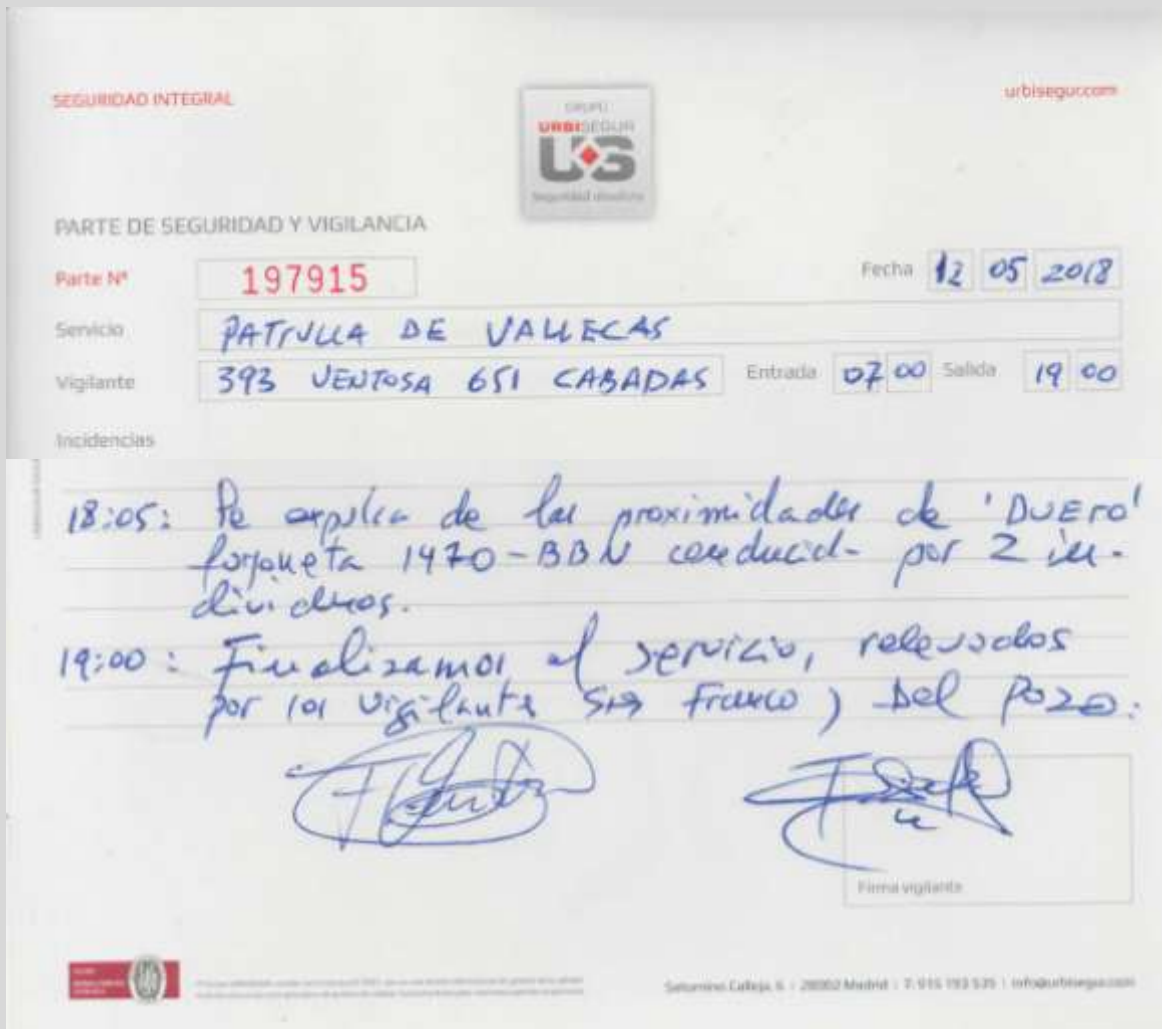 SEGURIDAD INTEGRAL
urbisegur.com
GRUPO
URBISEGUR
UG
PARTE DE SEGURIDAD Y VIGILANCIA
Parte Nº 197915 Fecha 12 05 2018
Servicio PATRULLA DE VALLECAS
Vigilante 393 VENTOSA 651 CABADAS Entrada 07 00 Salida 19 00
Incidencias
18:05: Se expulsa de las proximidades de 'DUERO'
furgoneta 1470-BBN conducid- por 2 in-
dividuos.
19:00: Finalizamos el servicio, relevados
por los vigilantes Franco y Del Pozo.
Firma vigilante
Saturnino Calleja, 6 | 28002 Madrid | T. 915 193 535 | info@urbisegur.com